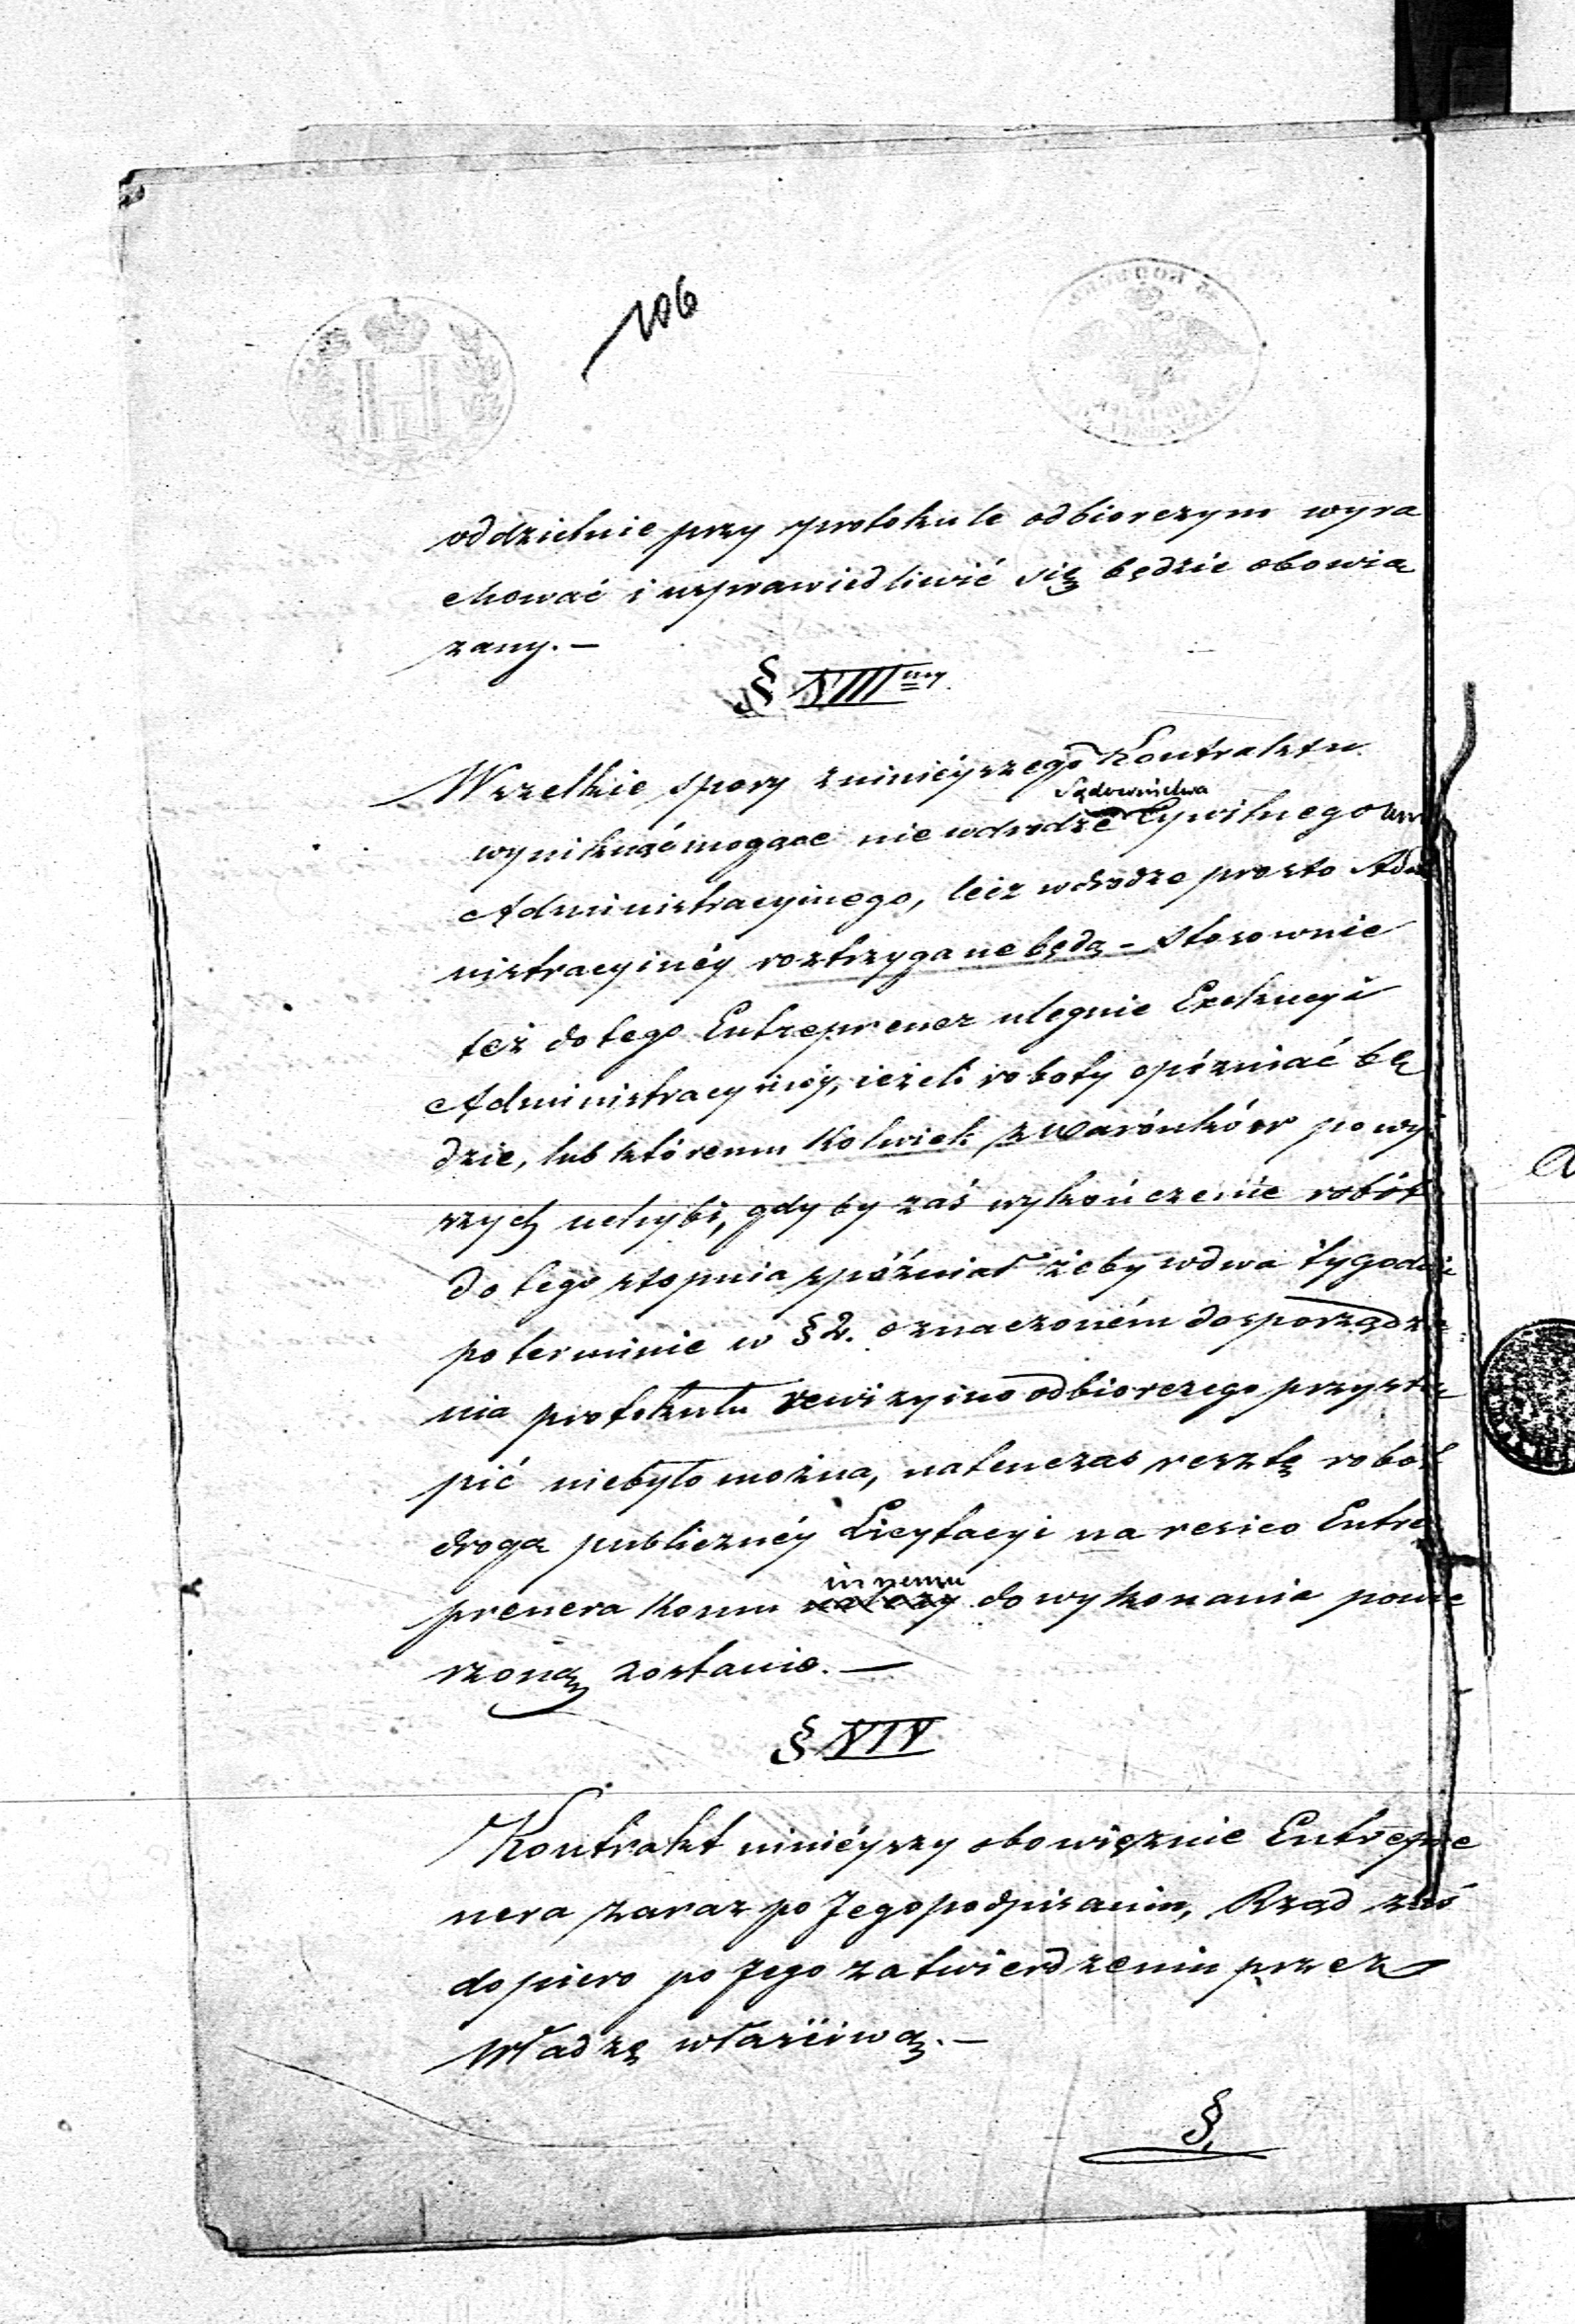 106
oddzielnie przy protokule odbiorczym wyra
chować i usprawiedliwić się będzie obowią
zany. —
§ XIII ny
Wszelkie spory z ninieyszego Kontraktu
Sądownictwa
wyniknąć mogące nie w drodze Cywilnego
Administracyinego, lecz w drodze prosto Admi
nistracyinéy roztrzygane będą - stosownie
też do tego Entreprener ulegnie Exekucyi
Administracyinéy, ieżeli roboty opózniać bę
dzie, lub któremu kolwiek z Warónków powy
szych uchybi, gdyby zaś wykończenie robót
do tego stopnia spóźniał żeby w dwa tygodnie
po terminie w § 2. oznaczoném do sporządze
nia protokułu rewizyino odbiorczego przystą
pić niebyło można, natenczas resztę robót
drogą publicznéy Licytacyi na resico Entre
innemu
prenera komu do wykonania powie
rzoną zostanie. —
§ XIV
Kontrakt ninieyszy obowięznie Entrepre
nera zaraz po Jego podpisaniu, Rząd zaś
dopiero po Jego zatwierdzeniu przez
Władzę właściwą. —
§